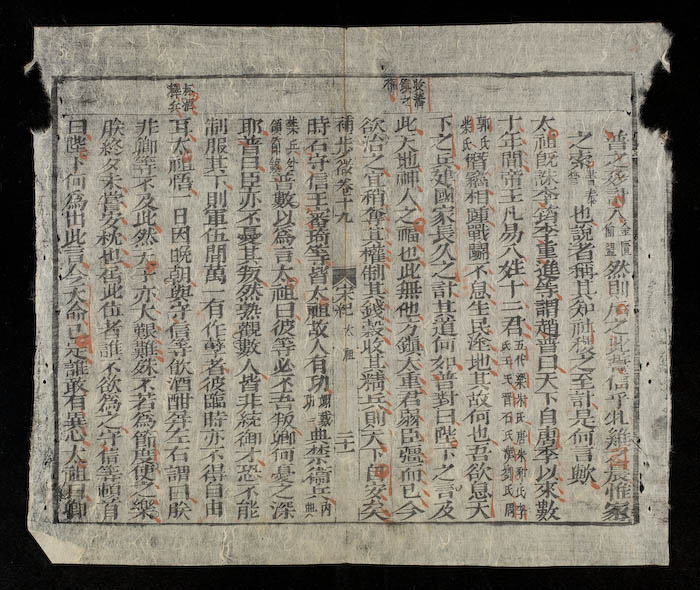 普之遠計 然則后之此舉信乎
之索 也說者稱其知社稷之至計是何言歟
太祖既誅李筠李重進等謂趙普曰天下自唐季以來數
十年間帝王凡易八姓十二君五代梁朱氏唐朱邪氏李氏王氏晉石氏漢劉氏周
郭氏柴氏僭竊相踵戰鬬不息生民塗地其故何也吾欲息天
下之兵建國家長久之計其道何如普對曰陛下之言及
收藩鎮之柄
此天地神人之福也此無他方鎮太重君弱臣彊而已今
欲治之宜稍奪其權制其錢穀收其精兵則天下自安矣
卷十九 宋紀 太祖 二十一
時石守信王審琦等皆太祖故人有功翊戴功典禁衛兵内典
禁兵外領節鎮普數以為言太祖曰彼等必不吾叛卿何憂之深
耶普曰臣亦不憂其叛然熟觀數人皆非統御才恐不能
制服其下則軍伍間萬一有作孽者彼臨時亦不得自由
杯酒釋兵
耳太祖悟一日因晚朝與守信等飲酒酣屏左右謂曰朕
非卿等不及此然天子亦大艱難殊不若為節度使之樂
朕終夕未嘗安枕也居此位者誰不欲為之守信等頓首
曰陛下何為出此言今天命已定誰敢有異心太祖曰卿